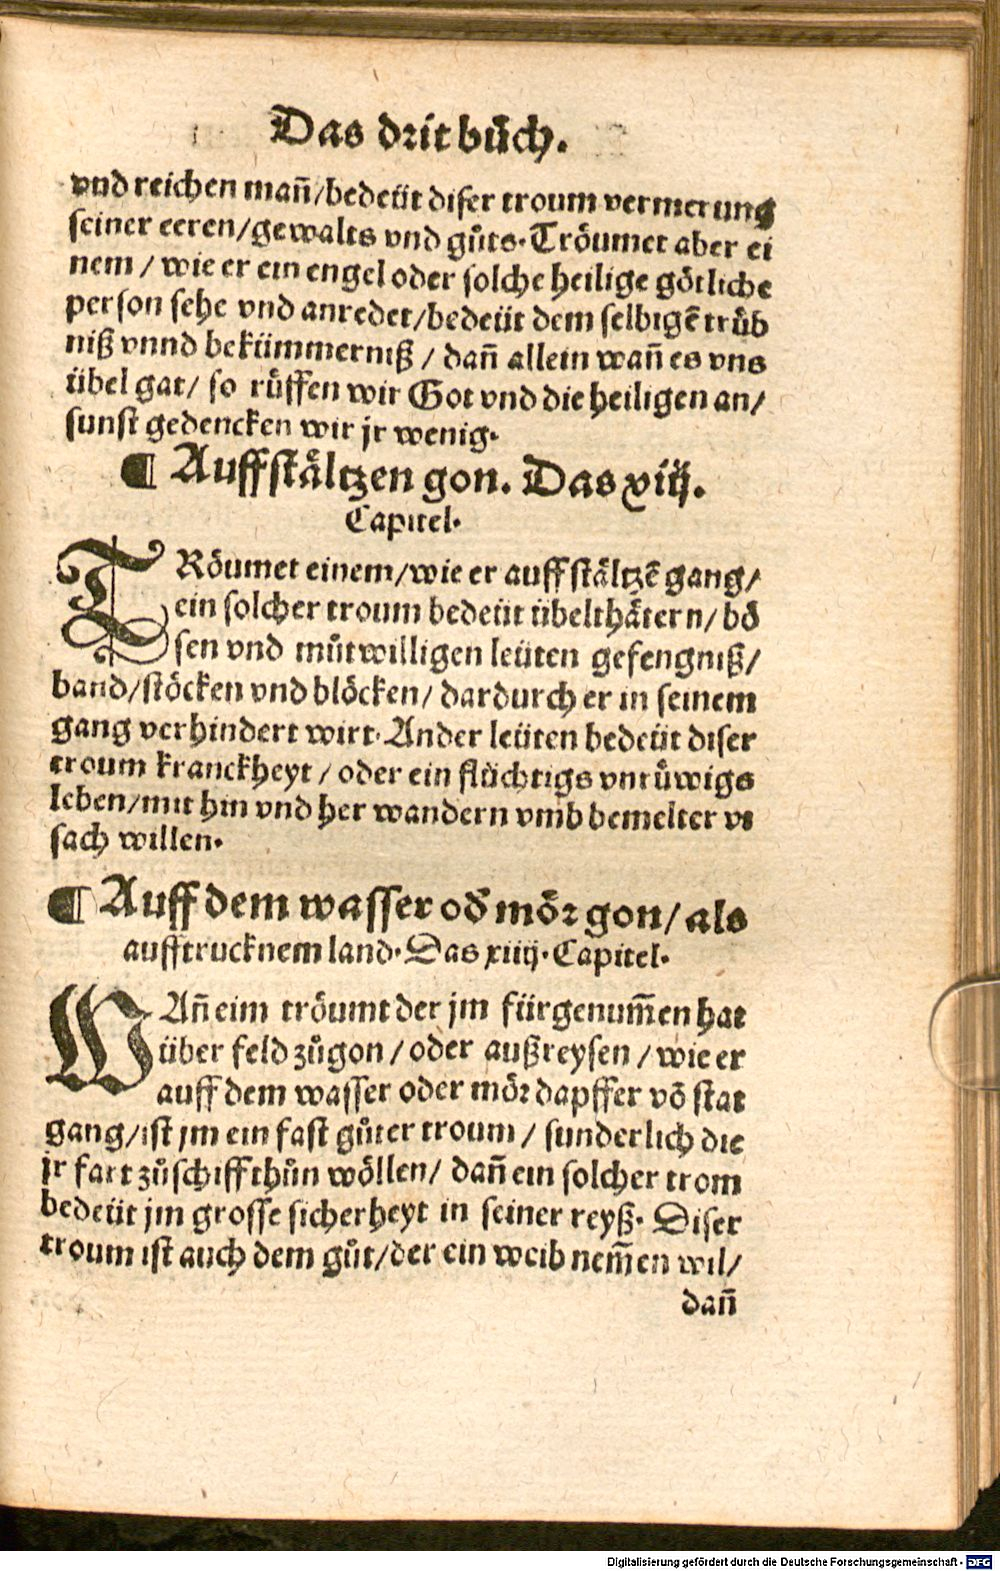 Das drit bůch.
vnd reichen mañ/bedeüt diser troum vermerung
seiner eeren/gewalts vnd gůts. Tröumet aber ei
nem / wie er ein engel oder solche heilige götliche
person sehe vnd anredet/bedeüt dem selbigē trüb
niß vnnd bekümmerniß / dañ allein wañ es vns
übel gat/ so rüffen wir Got vnd die heiligen an/
sunst gedencken wir jr wenig.
¶ Auff stältzen gon. Das xiij.
Capitel.
TRöumet einem/wie er auff stältzē gang/
ein solcher troum bedeüt übelthätern/ bö
sen vnd můtwilligen leüten gefengniß/
band/stöcken vnd blöcken/ dardurch er in seinem
gang verhindert wirt. Ander leüten bedeüt diser
troum kranckheyt / oder ein flüchtigs vnrüwigs
leben/mit hin vnd her wandern vmb bemelter vr
sach willen.
¶ Auff dem wasser od̄ mör gon/ als
auff trucknem land. Das xiiij. Capitel.
WAñ eim tröumt der jm fürgenum̄en hat
über feld zůgon / oder außreysen / wie er
auff dem wasser oder mör dapffer vō stat
gang/ist jm ein fast gůter troum / sunderlich die
jr fart zůschiff thůn wöllen/ dañ ein solcher trom
bedeüt jm grosse sicherheyt in seiner reyß. Diser
troum ist auch dem gůt/der ein weib nem̄en wil/
dañ
Digitalisierung gefördert durch die Deutsche Forschungsgemeinschaft - DFG